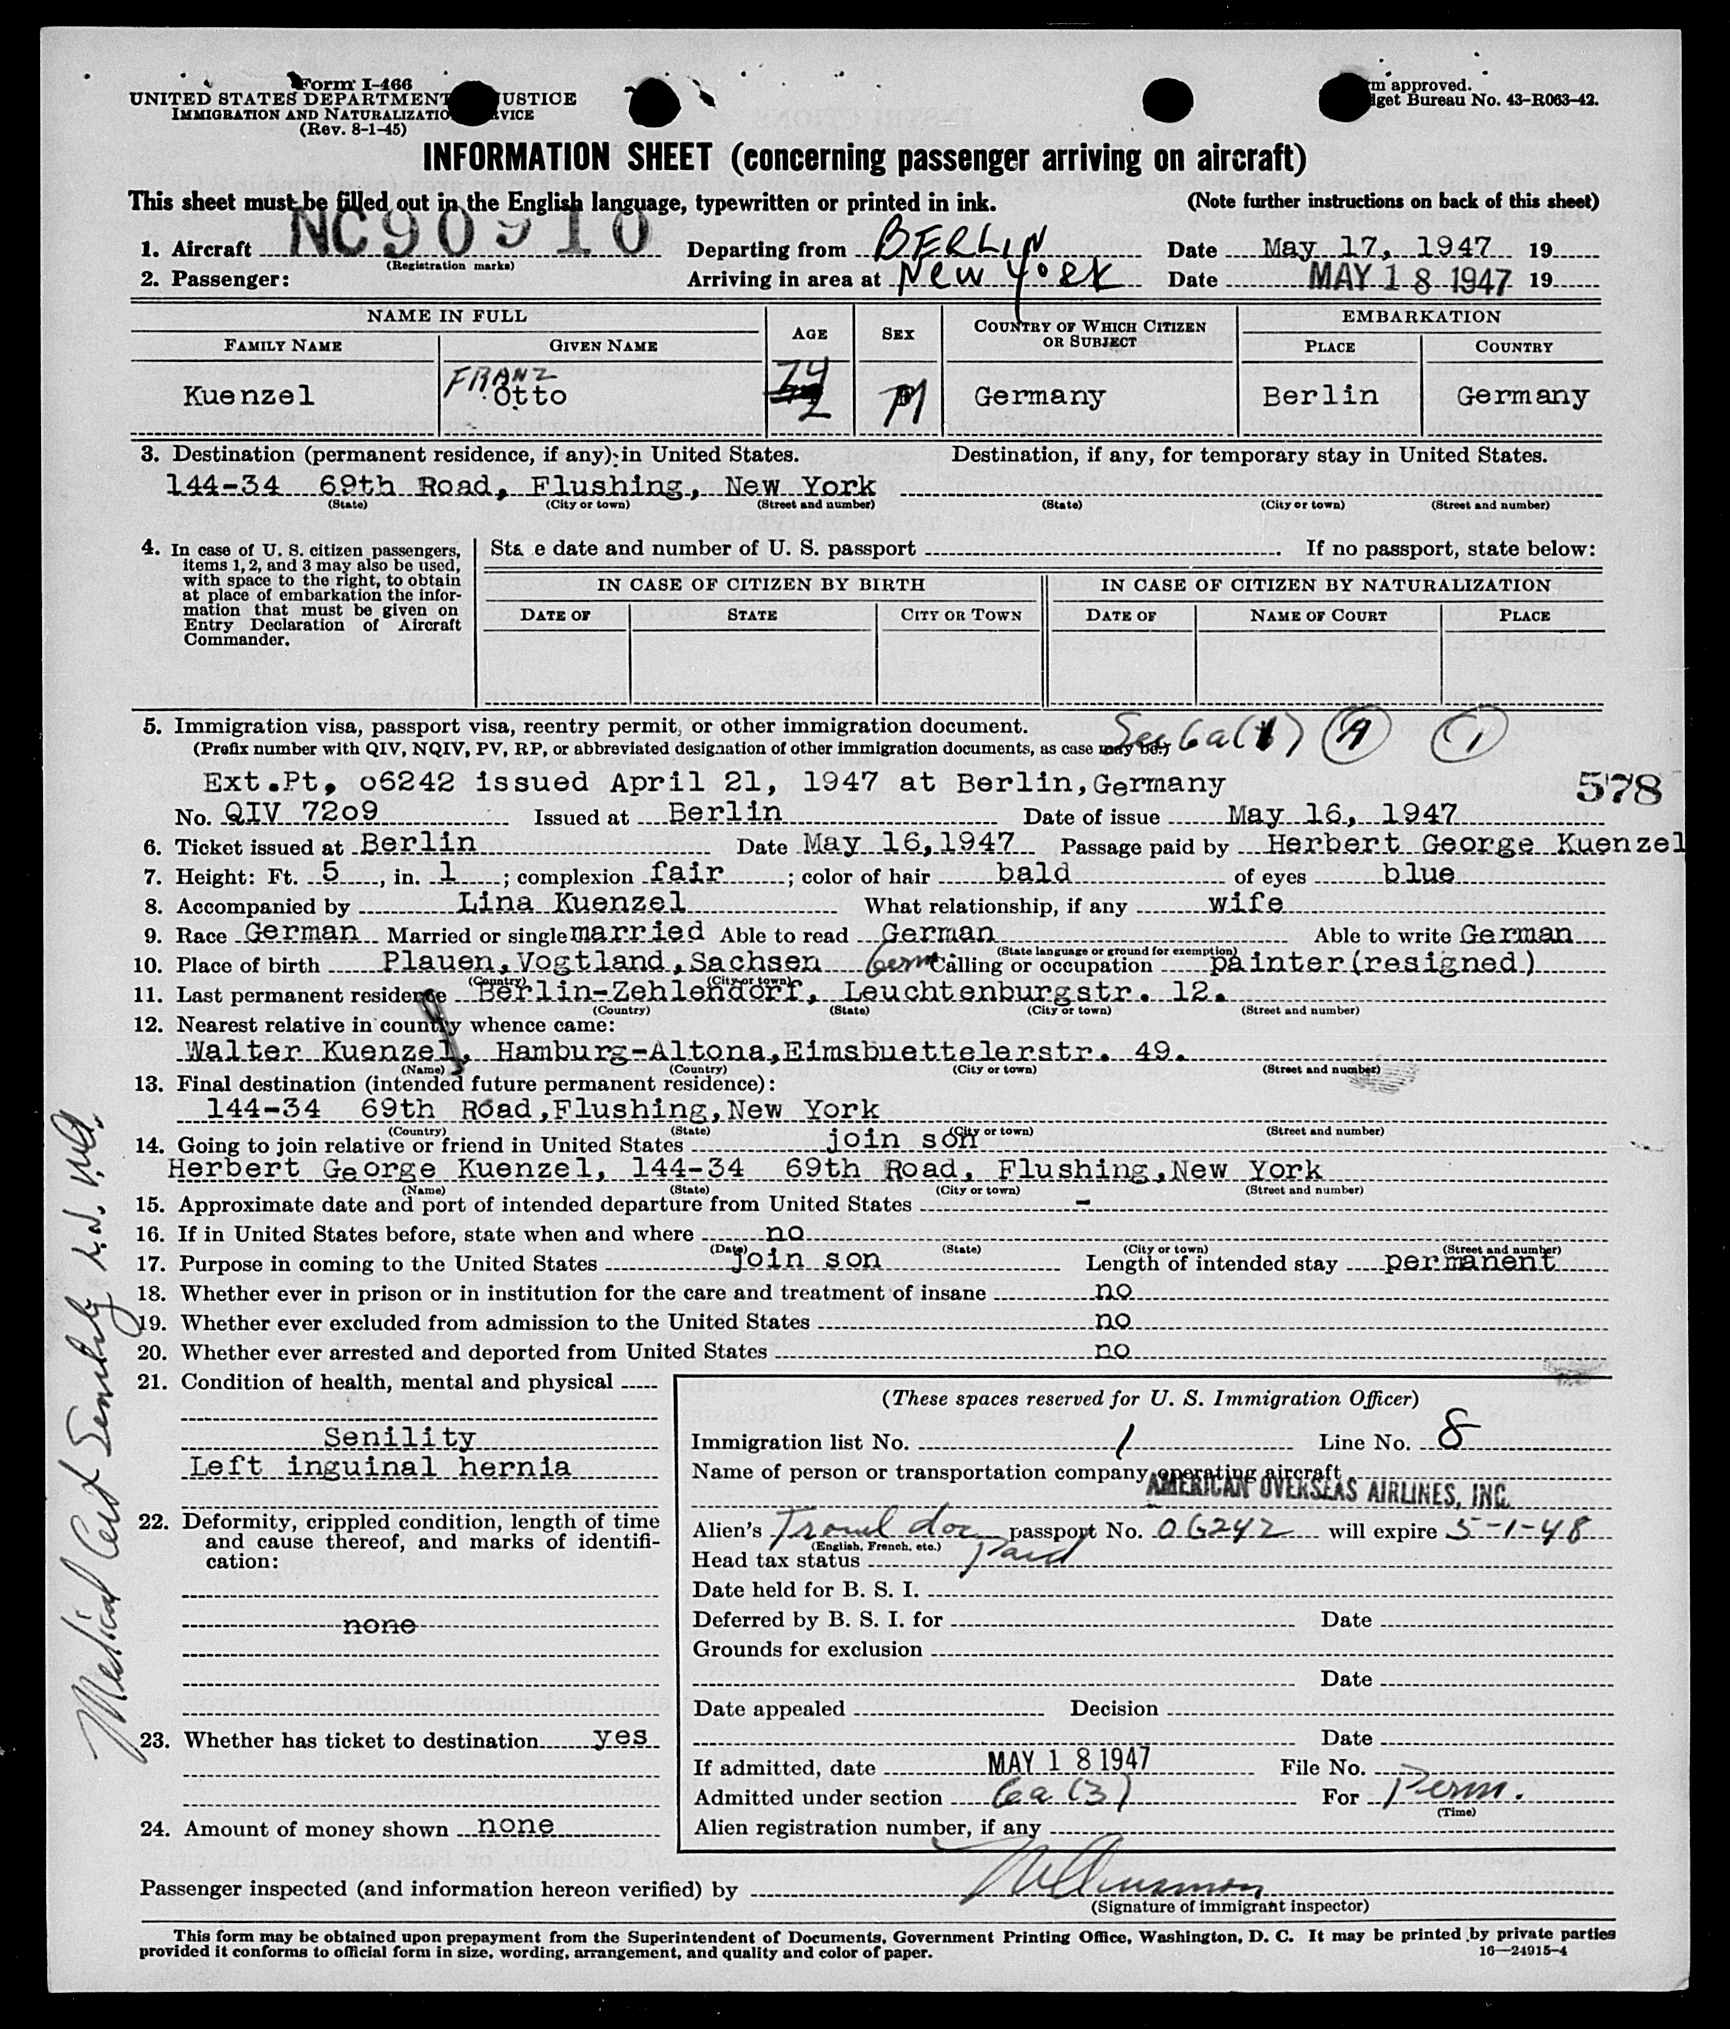 Form I-466
UNITED STATES DEPARTMENT USTICE
IMMIGRATION AND NATURALIZATIO VICE
(Rev. 8-1-45)
m approved.
get Bureau No. 43-R063-42.
INFORMATION SHEET (concerning passenger arriving on aircraft)
This sheet must be filled out in the English language, typewritten or printed in ink. (Note further instructions on back of this sheet)
1. Aircraft NC90910 Departing from BERLIN Date May 17, 1947 19
(Registration marks)
2. Passenger: Arriving in area at New York Date MAY 18 1947 19
NAME IN FULL AGE SEX COUNTRY OF WHICH CITIZEN OR SUBJECT EMBARKATION
FAMILY NAME GIVEN NAME PLACE COUNTRY
FRANZ 74
Kuenzel Otto M Germany Berlin Germany
3. Destination (permanent residence, if any) in United States. Destination, if any, for temporary stay in United States.
144-34 69th Road, Flushing, New York
(State) (City or town) (Street and number) (State) (City or town) (Street and number)
4. In case of U. S. citizen passengers, items 1, 2, and 3 may also be used, with space to the right, to obtain at place of embarkation the information that must be given on Entry Declaration of Aircraft Commander.
Sta e date and number of U. S. passport . If no passport, state below:
IN CASE OF CITIZEN BY BIRTH IN CASE OF CITIZEN BY NATURALIZATION
DATE OF STATE CITY OR TOWN DATE OF NAME OF COURT PLACE
5. Immigration visa, passport visa, reentry permit, or other immigration document.
(Prefix number with QIV, NQIV, PV, RP, or abbreviated designation of other immigration documents, as case may be.) See 6a(1) A 1
Ext.Pt, o6242 issued April 21, 1947 at Berlin,Germany 578
No. QIV 72o9 Issued at Berlin Date of issue May 16, 1947
6. Ticket issued at Berlin Date May 16,1947 Passage paid by Herbert George Kuenzel
7. Height: Ft. 5, in. 1; complexion fair; color of hair bald of eyes blue
8. Accompanied by Lina Kuenzel What relationship, if any wife
9. Race German Married or single married Able to read German Able to write German
(State language or ground for exemption)
10. Place of birth Plauen,Vogtland,Sachsen Germ Calling or occupation painter(resigned)
(Country) (City or town)
11. Last permanent residence Berlin-Zehlendorf, Leuchtenburgstr. 12.
(Country) (State) (City or town) (Street and number)
12. Nearest relative in country whence came:
Walter Kuenzel, Hamburg-Altona,Eimsbuettelerstr. 49.
(Name) (Country) (City or town) (Street and number)
13. Final destination (intended future permanent residence):
144-34 69th Road,Flushing,New York
(Country) (State) (City or town) (Street and number)
14. Going to join relative or friend in United States join son
Herbert George Kuenzel, 144-34 69th Road, Flushing,New York
(Name) (State) (City or town) (Street and number)
15. Approximate date and port of intended departure from United States -
16. If in United States before, state when and where no
(Date) (State) (City or town) (Street and number)
17. Purpose in coming to the United States join son Length of intended stay permanent
18. Whether ever in prison or in institution for the care and treatment of insane no
19. Whether ever excluded from admission to the United States no
20. Whether ever arrested and deported from United States no
21. Condition of health, mental and physical
Senility
Left inguinal hernia
22. Deformity, crippled condition, length of time and cause thereof, and marks of identification:
none
23. Whether has ticket to destination yes
24. Amount of money shown none
(These spaces reserved for U. S. Immigration Officer)
Immigration list No. 1 Line No. 8
Name of person or transportation company operating aircraft
AMERICAN OVERSEAS AIRLINES, INC.
Alien's Travel doc passport No. 06242 will expire 5-1-48
(English, French, etc.)
Head tax status Paid
Date held for B. S. I.
Deferred by B. S. I. for Date
Grounds for exclusion
Date
Date appealed Decision
Date
If admitted, date MAY 18 1947 File No.
Admitted under section 6a(3) For Perm.
(Time)
Alien registration number, if any
Passenger inspected (and information hereon verified) by
(Signature of immigrant inspector)
This form may be obtained upon prepayment from the Superintendent of Documents, Government Printing Office, Washington, D. C. It may be printed by private parties
provided it conforms to official form in size, wording, arrangement, and quality and color of paper. 16—24915-4
Medical Cert Senility